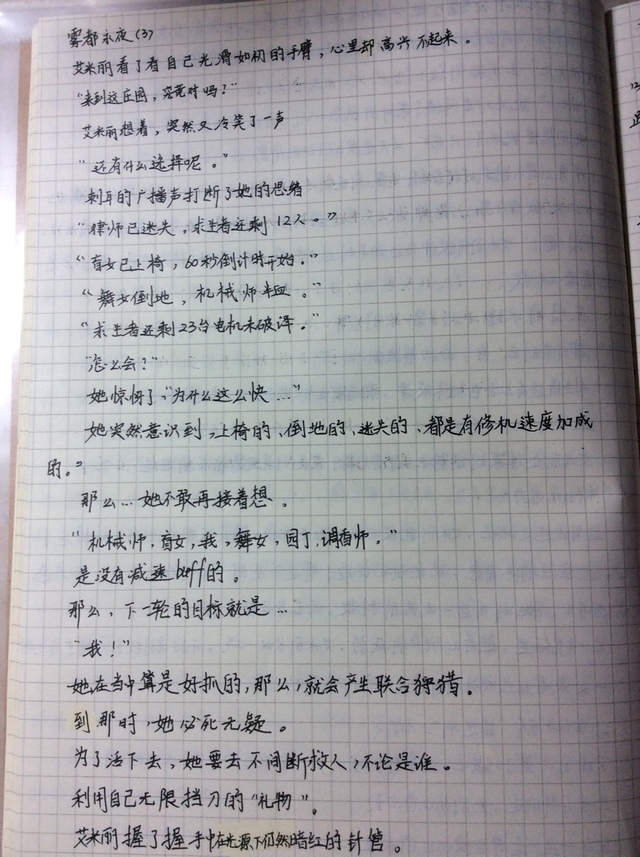 雾都永夜(3)
艾米丽看了看自己光滑如初的手臂，心里却高兴不起来。
“来到这庄园，究竟对吗？”
艾米丽想着，突然又冷笑了一声
“还有什么选择呢。”
刺耳的广播声打断了她的思绪
“律师已迷失，求生者还剩12人。”
“盲女已上椅，60秒倒计时开始。”
“舞女倒地，机械师半血。”
“求生者还剩23台电机未破译。”
“怎么会？”
她惊讶了，“为什么这么快…”
她突然意识到，上椅的、倒地的、迷失的、都是有修机速度加成
的。”
那么…她不敢再接着想。
“机械师，盲女，我，舞女，园丁，调香师，”
是没有减速buff的。
那么，下一轮的目标就是…
“我！”
她在当中算是好抓的，那么，就会产生联合狩猎。
到那时，她必死无疑。
为了活下去，她要去不间断救人，不论是谁。
利用自己无限挡刀的“礼物”。
艾米丽握了握手中在光源下仍然暗红的针管。